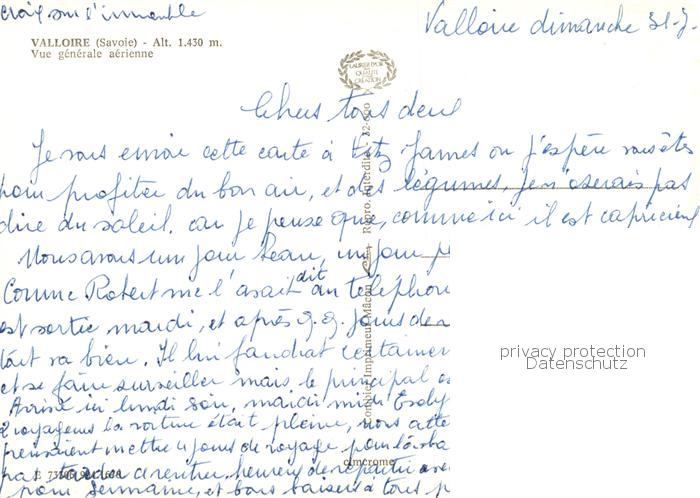 croix sur l'immeuble
Valloire dimanche 31-7-
VALLOIRE (Savoie) - Alt. 1.430 m.
Vue générale aérienne
LAURIER D'OR
DE LA
QUALITÉ
CRÉATION
Chers tous deux
Je vous envoie cette carte à James où j'espère vous êtes
pour profiter du bon air, et des légumes, je n'oserais pas
dire du soleil, car je pense que, comme ici il est capricieux
Nous avons un jour beau, un jour
Comme Robert me l'avait dit au téléphone
est sortie mardi, et après q.q. jours de
tout va bien. Il lui faudrait certainement
et se faire surveiller mais le principal
Arrivé ici lundi soir, mardi
voyageurs la voiture était pleine, nous
mettre 4 jours de voyage pour
a rentrer heureux de
pour Germaine, et bons baisers à tous
Combier Imprimeur Mâcon
Repro. Interdite
cimcrome
privacy protection
Datenschutz